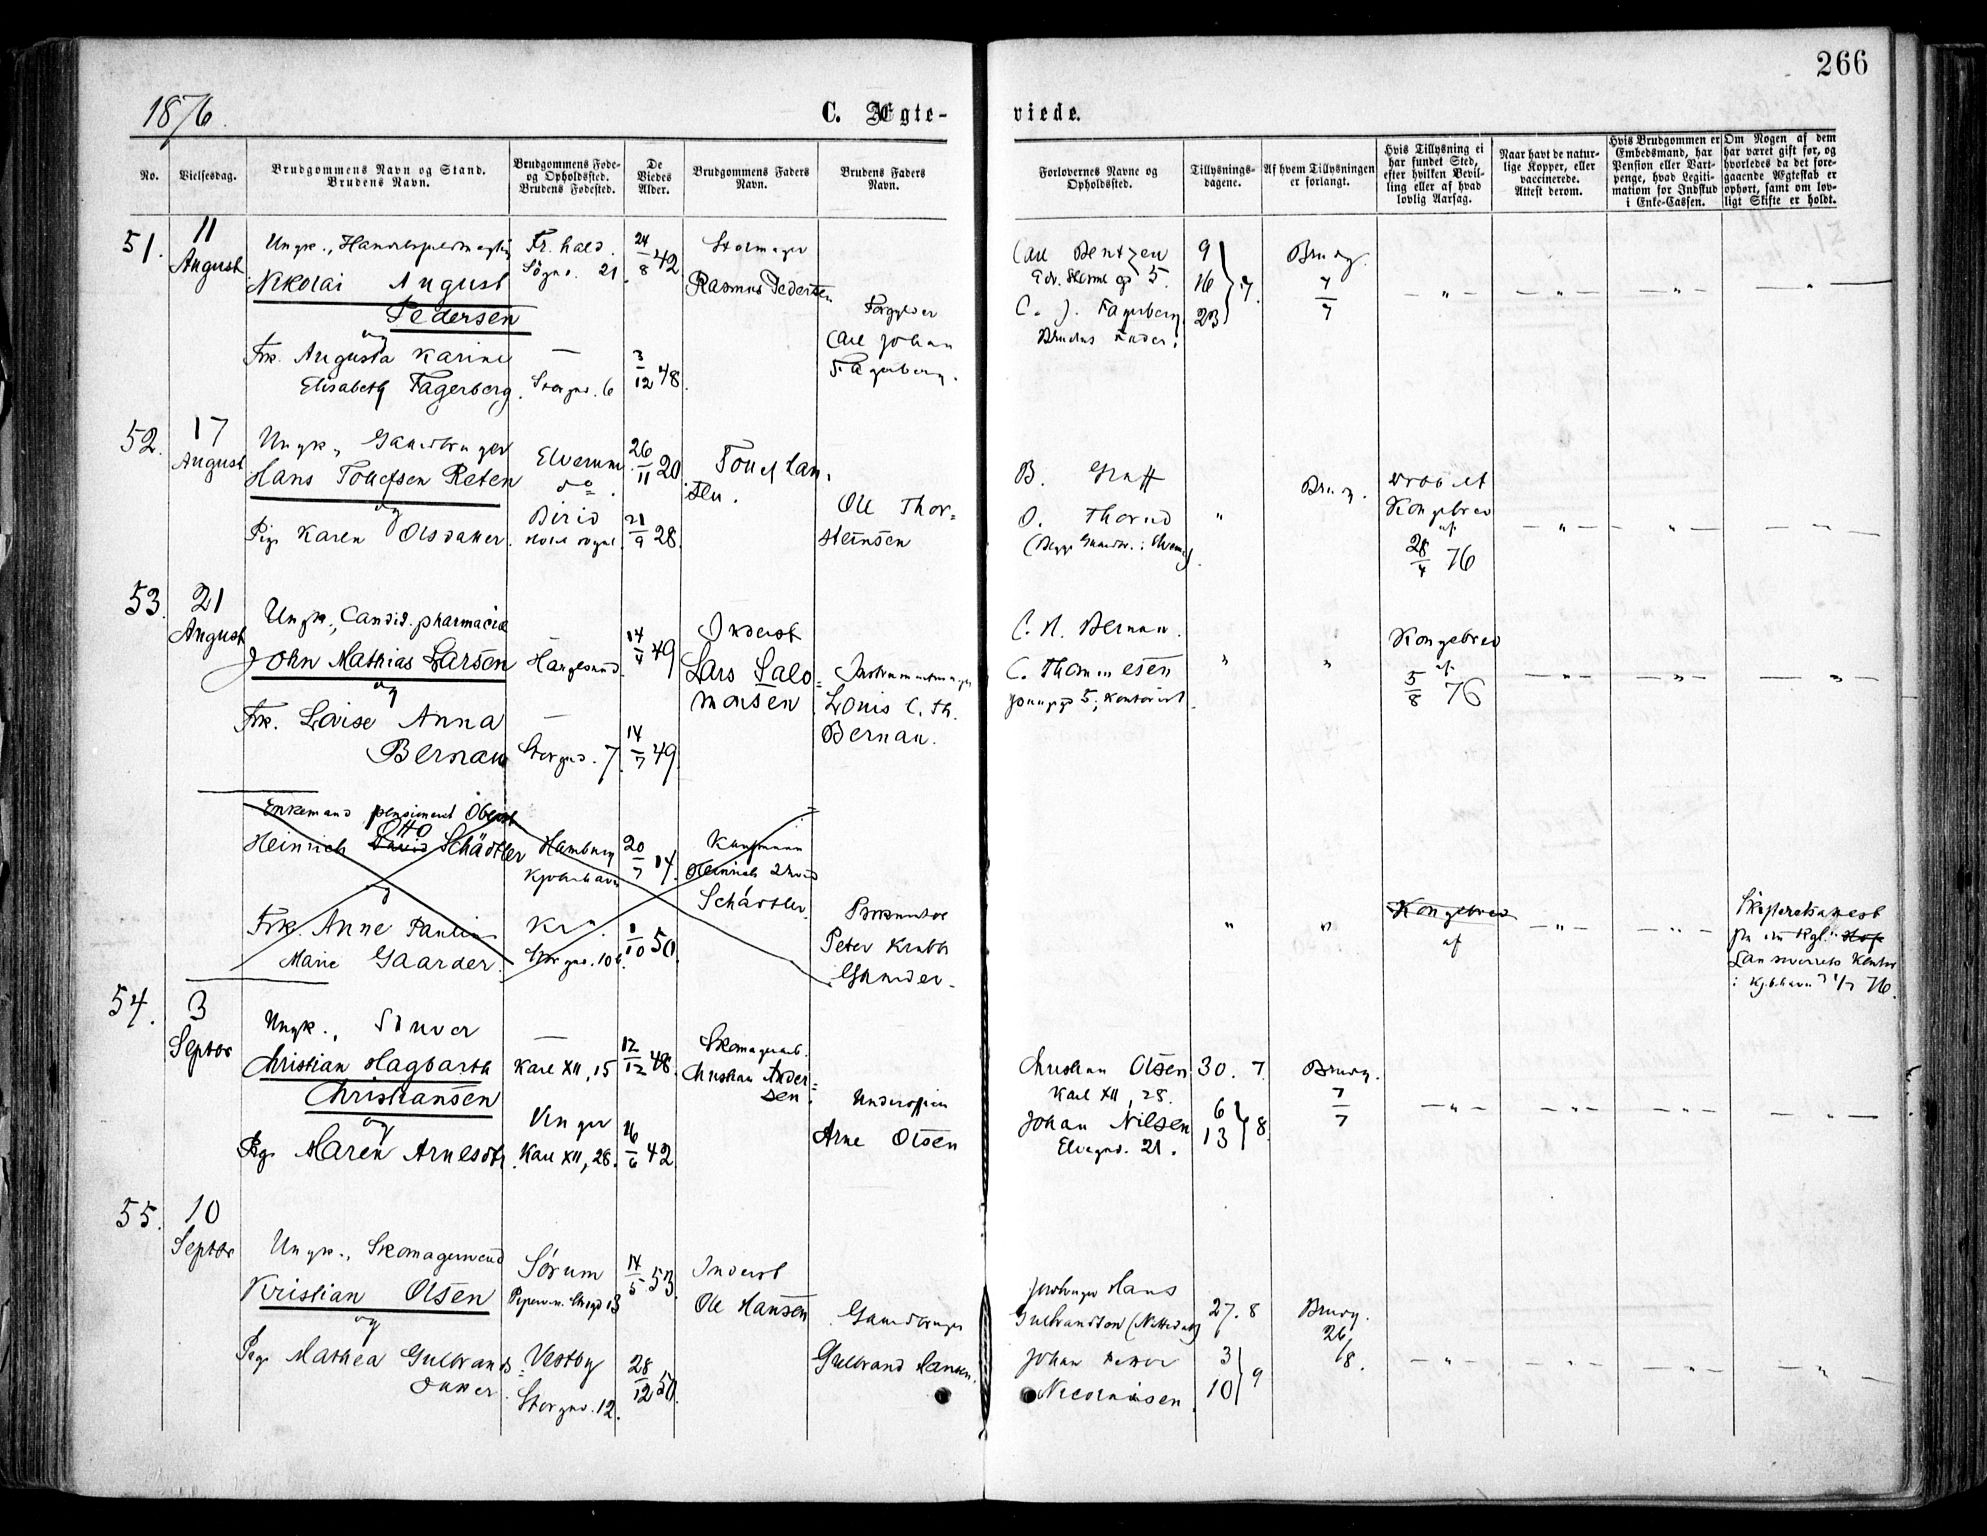 266
1876
C. Ægte-
viede.
No.
Vielsesdag.
Brudgommens Navn og Stand.
Brudens Navn.
Brudgommens Føde-
og Opholdssted.
Brudens Fødested.
De
Viedes
Alder.
Brudgommens Faders
Navn.
Brudens Faders
Navn.
Forlovernes Navne og
Opholdssted.
Tillysnings-
dagene.
Af hvem Tillysningen
er forlangt.
Hvis Tillysning ei
har fundet Sted,
efter hvilken Bevil-
ling eller af hvad
lovlig Aarsag.
Naar havt de natur-
lige Kopper, eller
vaccinerede.
Attest derom.
Hvis Brudgommen er
Embedsmand, har
Pension eller Vart-
penge, hvad Legiti-
mation for Indskud
i Enke-Cassen.
Om Nogen af dem
har været gift før, og
hvorledes da det fore-
gaaende Ægteskab er
ophørt, samt om lov-
ligt Skifte er holdt.
51.
11
August
Ungk.,
Nikolai August
Pedersen
og
Frk. Augusta Karine
Elisabeth Fagerberg.
Fr.hald.
Søgd. 21.
Storgd. 6
24/8 42
3/12 48.
Rasmus Pedersen
Forgylder
Carl Johan
Fagerberg.
Carl Bentzen
5.
C. J. Fagerberg.
Brudens Fader.
9
16
23
7.
Brudg.
7/7
52.
17
August
Ungk., Gaardbruger
Hans Reten
og
Pige Karen Olsdatter.
Elverum
do.
Birid
26/11 20
21/9 28.
Ole Thor-
steinsen
B. Graff
O.
"
Brudg.
Kongebrev
af
28/4 76
53.
21
August
Ungk., Candid. pharmaciæ
John Mathias Larsen
og
Frk. Lovise Anna
Bernau
Haugesund.
Storgd. 7.
14/4 49
14/7 49.
Inderst
Lars Salo-
monsen
Louis C. Th.
Bernau.
C. N. Bernau.
C. Thommesen
5, Kontorist.
"
"
Kongebrev
af
5/8 76
Enkemand pensioneret Oberst
Heinrich David Otto Schädtler
og
Frk. Anne Pauline
Marie Gaarder.
Hamburg
Kjøbenhavn
Kra.
Storgd. 10
20/7 14.
1/10 50.
Kaufmann
Heinrich
Schädtler.
Peter Krabb
Gaarder.
"
"
Kongebrev
af
Skifteretsattest
fra det Kgl. Hof
i Kjøbhavn 76.
54.
3
Septbr
Ungk.,
Christian Hagbarth
Christiansen
og
Pige Maren Arnesdtr.
Karl XII, 15
Vinger
Karl XII, 28.
12/12 48.
16/6 42
Skomagerarb.
Christian Ander-
sen.
Arne Olsen
Christian Olsen
Karl XII, 28.
Johan Nilsen
Elvegd. 21.
30. 7.
6
13
8.
Brudg.
7/7
55.
10
Septbr
Ungk., Skomagersvend
Kristian Olsen
og
Pige Mathea Gulbrands-
datter.
Sørum
Vestby
Storgd. 12.
14/5 53.
28/12 50.
Inderst
Ole Hansen
Gaardbruger
Gulbrand Hansen.
Hans
Gulbrandson (Nittedal)
Johan Petter
Nicolaisen.
27. 8
3
10
9
Brudg.
26/8.